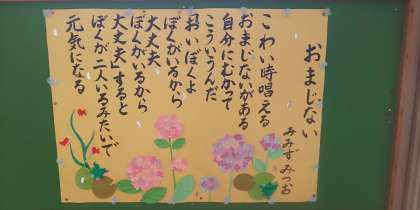 おまじない
みみずみつお
こわい時唱える
おまじないがある
自分にむかって
こういうんだ
おいぼくよ
ぼくがいるから
大丈夫
ぼくがいるから
大丈夫 すると
ぼくが二人いるみたいで
元気になる